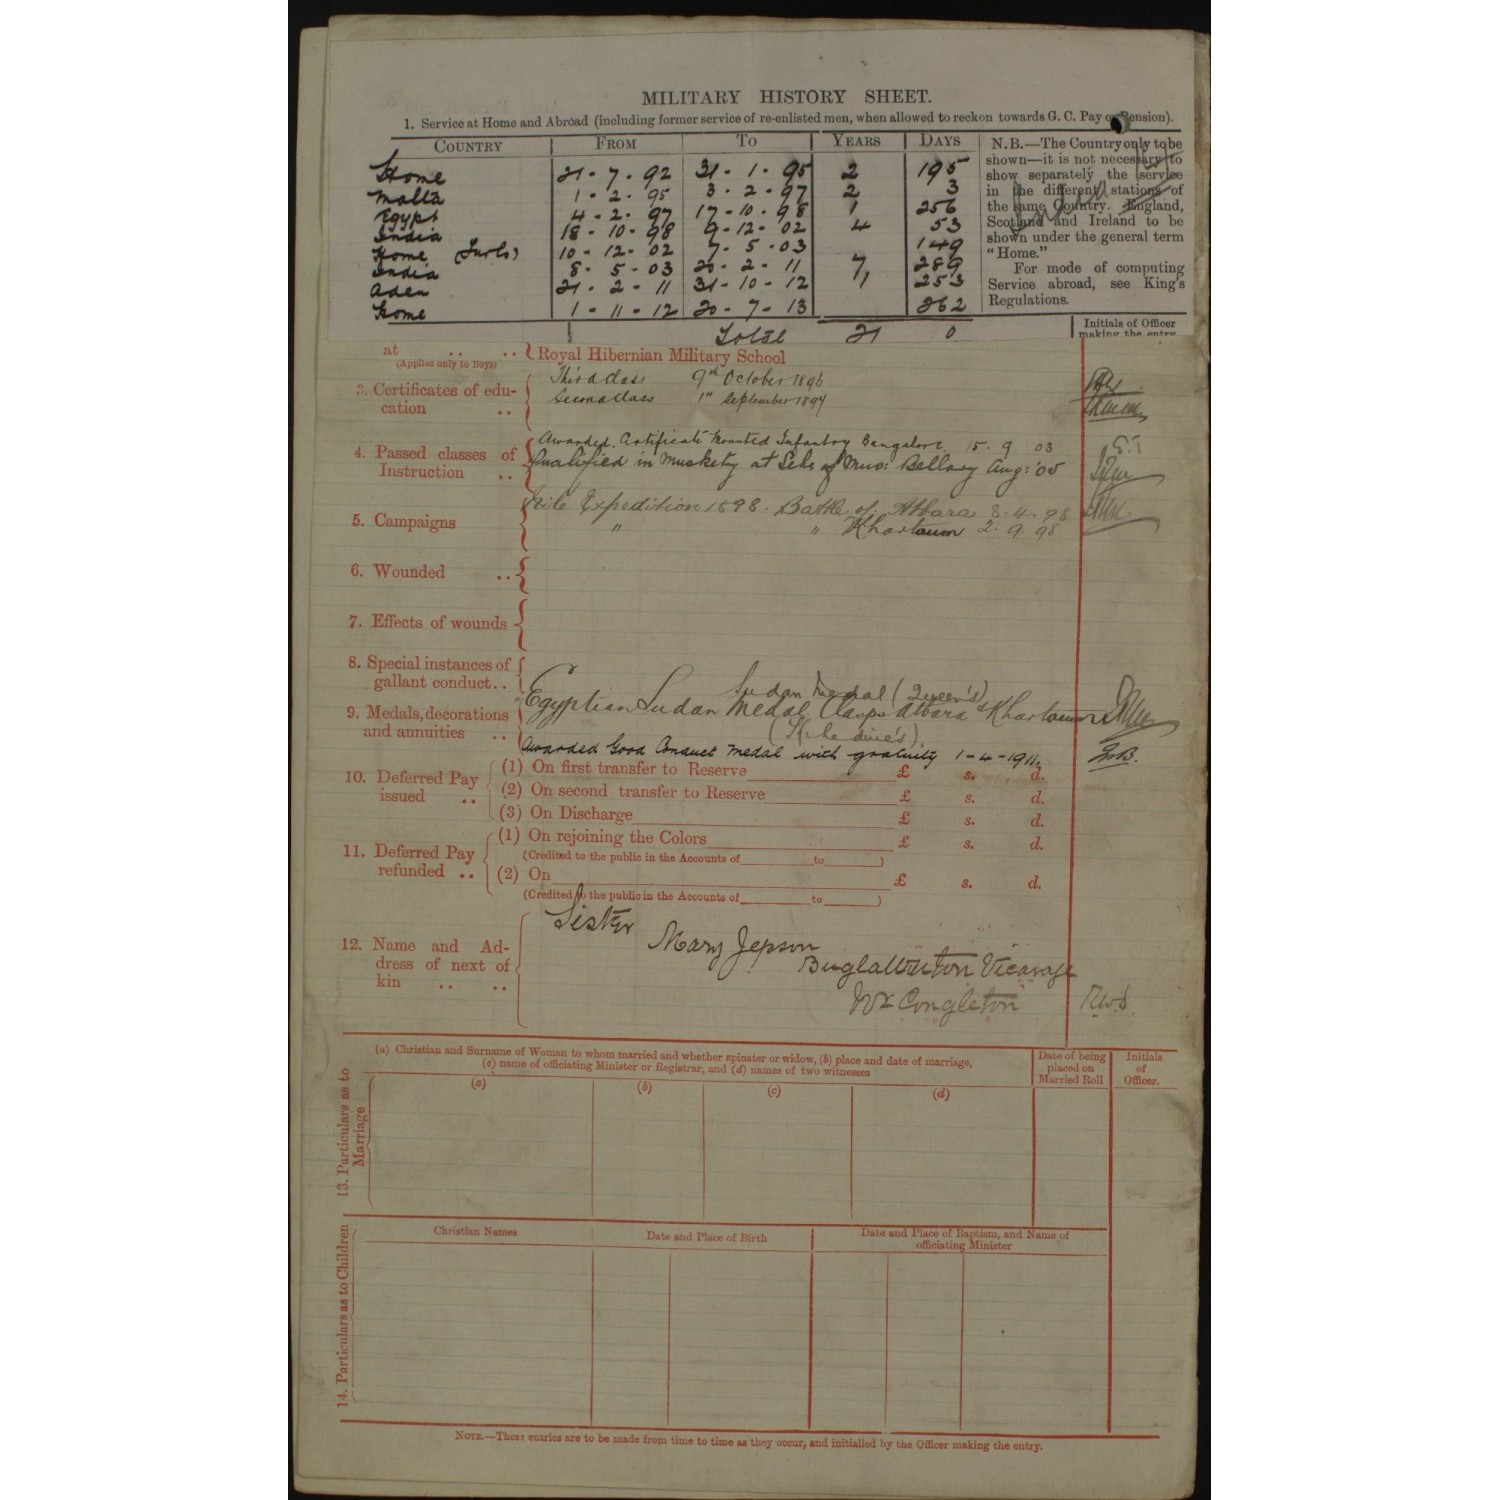 MILITARY HISTORY SHEET.
1. Service at Home and Abroad (including former service of re-enlisted men, when allowed to reckon towards G. C. Pay or Pension).
COUNTRY FROM TO YEARS DAYS
Home 21 - 7 - 92 31 - 1 - 95 2 195
Malta 1 - 2 - 95 3 - 2 - 97 2 3
Egypt 4 - 2 - 97 17 - 10 - 98 1 256
India 18 - 10 - 98 9 - 12 - 02 4 53
Home (Furlo) 10 - 12 - 02 7 - 5 - 03 149
India 8 - 5 - 03 20 - 2 - 11 7 289
Aden 21 - 2 - 11 31 - 10 - 12 1 253
Home 1 - 11 - 12 20 - 7 - 13 262
Total 21 0
N.B.—The Country only to be
shown—it is not necessary to
show separately the service
in the different stations of
the same Country. England,
Scotland and Ireland to be
shown under the general term
"Home."
For mode of computing
Service abroad, see King's
Regulations.
Initials of Officer
making the entry
at .. .. Royal Hibernian Military School
(Applies only to Boys)
3. Certificates of edu-
cation ..
Third Class 9th October 1896
Second Class 1st September 1897
4. Passed classes of
Instruction ..
Awarded Certificate Mounted Infantry Bangalore 15. 9 03
Qualified in Muskety at Schs of Mus: Bellary Aug: '05
5. Campaigns
Nile Expedition 1898. Battle of Atbara 8. 4. 98
" " Khartoum 2. 9. 98
6. Wounded ..
7. Effects of wounds
8. Special instances of
gallant conduct..
9. Medals, decorations
and annuities ..
Sudan Medal (Queen's)
Egyptian Sudan Medal Clasps Atbara & Khartoum
(Khedive's)
Awarded Good Conduct Medal with gratuity 1-4-1911.
10. Deferred Pay
issued ..
(1) On first transfer to Reserve £ s. d.
(2) On second transfer to Reserve £ s. d.
(3) On Discharge £ s. d.
11. Deferred Pay
refunded ..
(1) On rejoining the Colors £ s. d.
(Credited to the public in the Accounts of to )
(2) On £ s. d.
(Credited to the public in the Accounts of to )
12. Name and Ad-
dress of next of
kin .. ..
Sister
Mary Jepson
Buglawton Vicarage
Nr Congleton
R.W.S.
13. Particulars as to
Marriage
(a) Christian and Surname of Woman to whom married and whether spinster or widow, (b) place and date of marriage,
(c) name of officiating Minister or Registrar, and (d) names of two witnesses
Date of being
placed on
Married Roll
Initials
of
Officer.
(a) (b) (c) (d)
14. Particulars as to Children
Christian Names
Date and Place of Birth
Date and Place of Baptism, and Name of
officiating Minister
NOTE.—These entries are to be made from time to time as they occur, and initialled by the Officer making the entry.